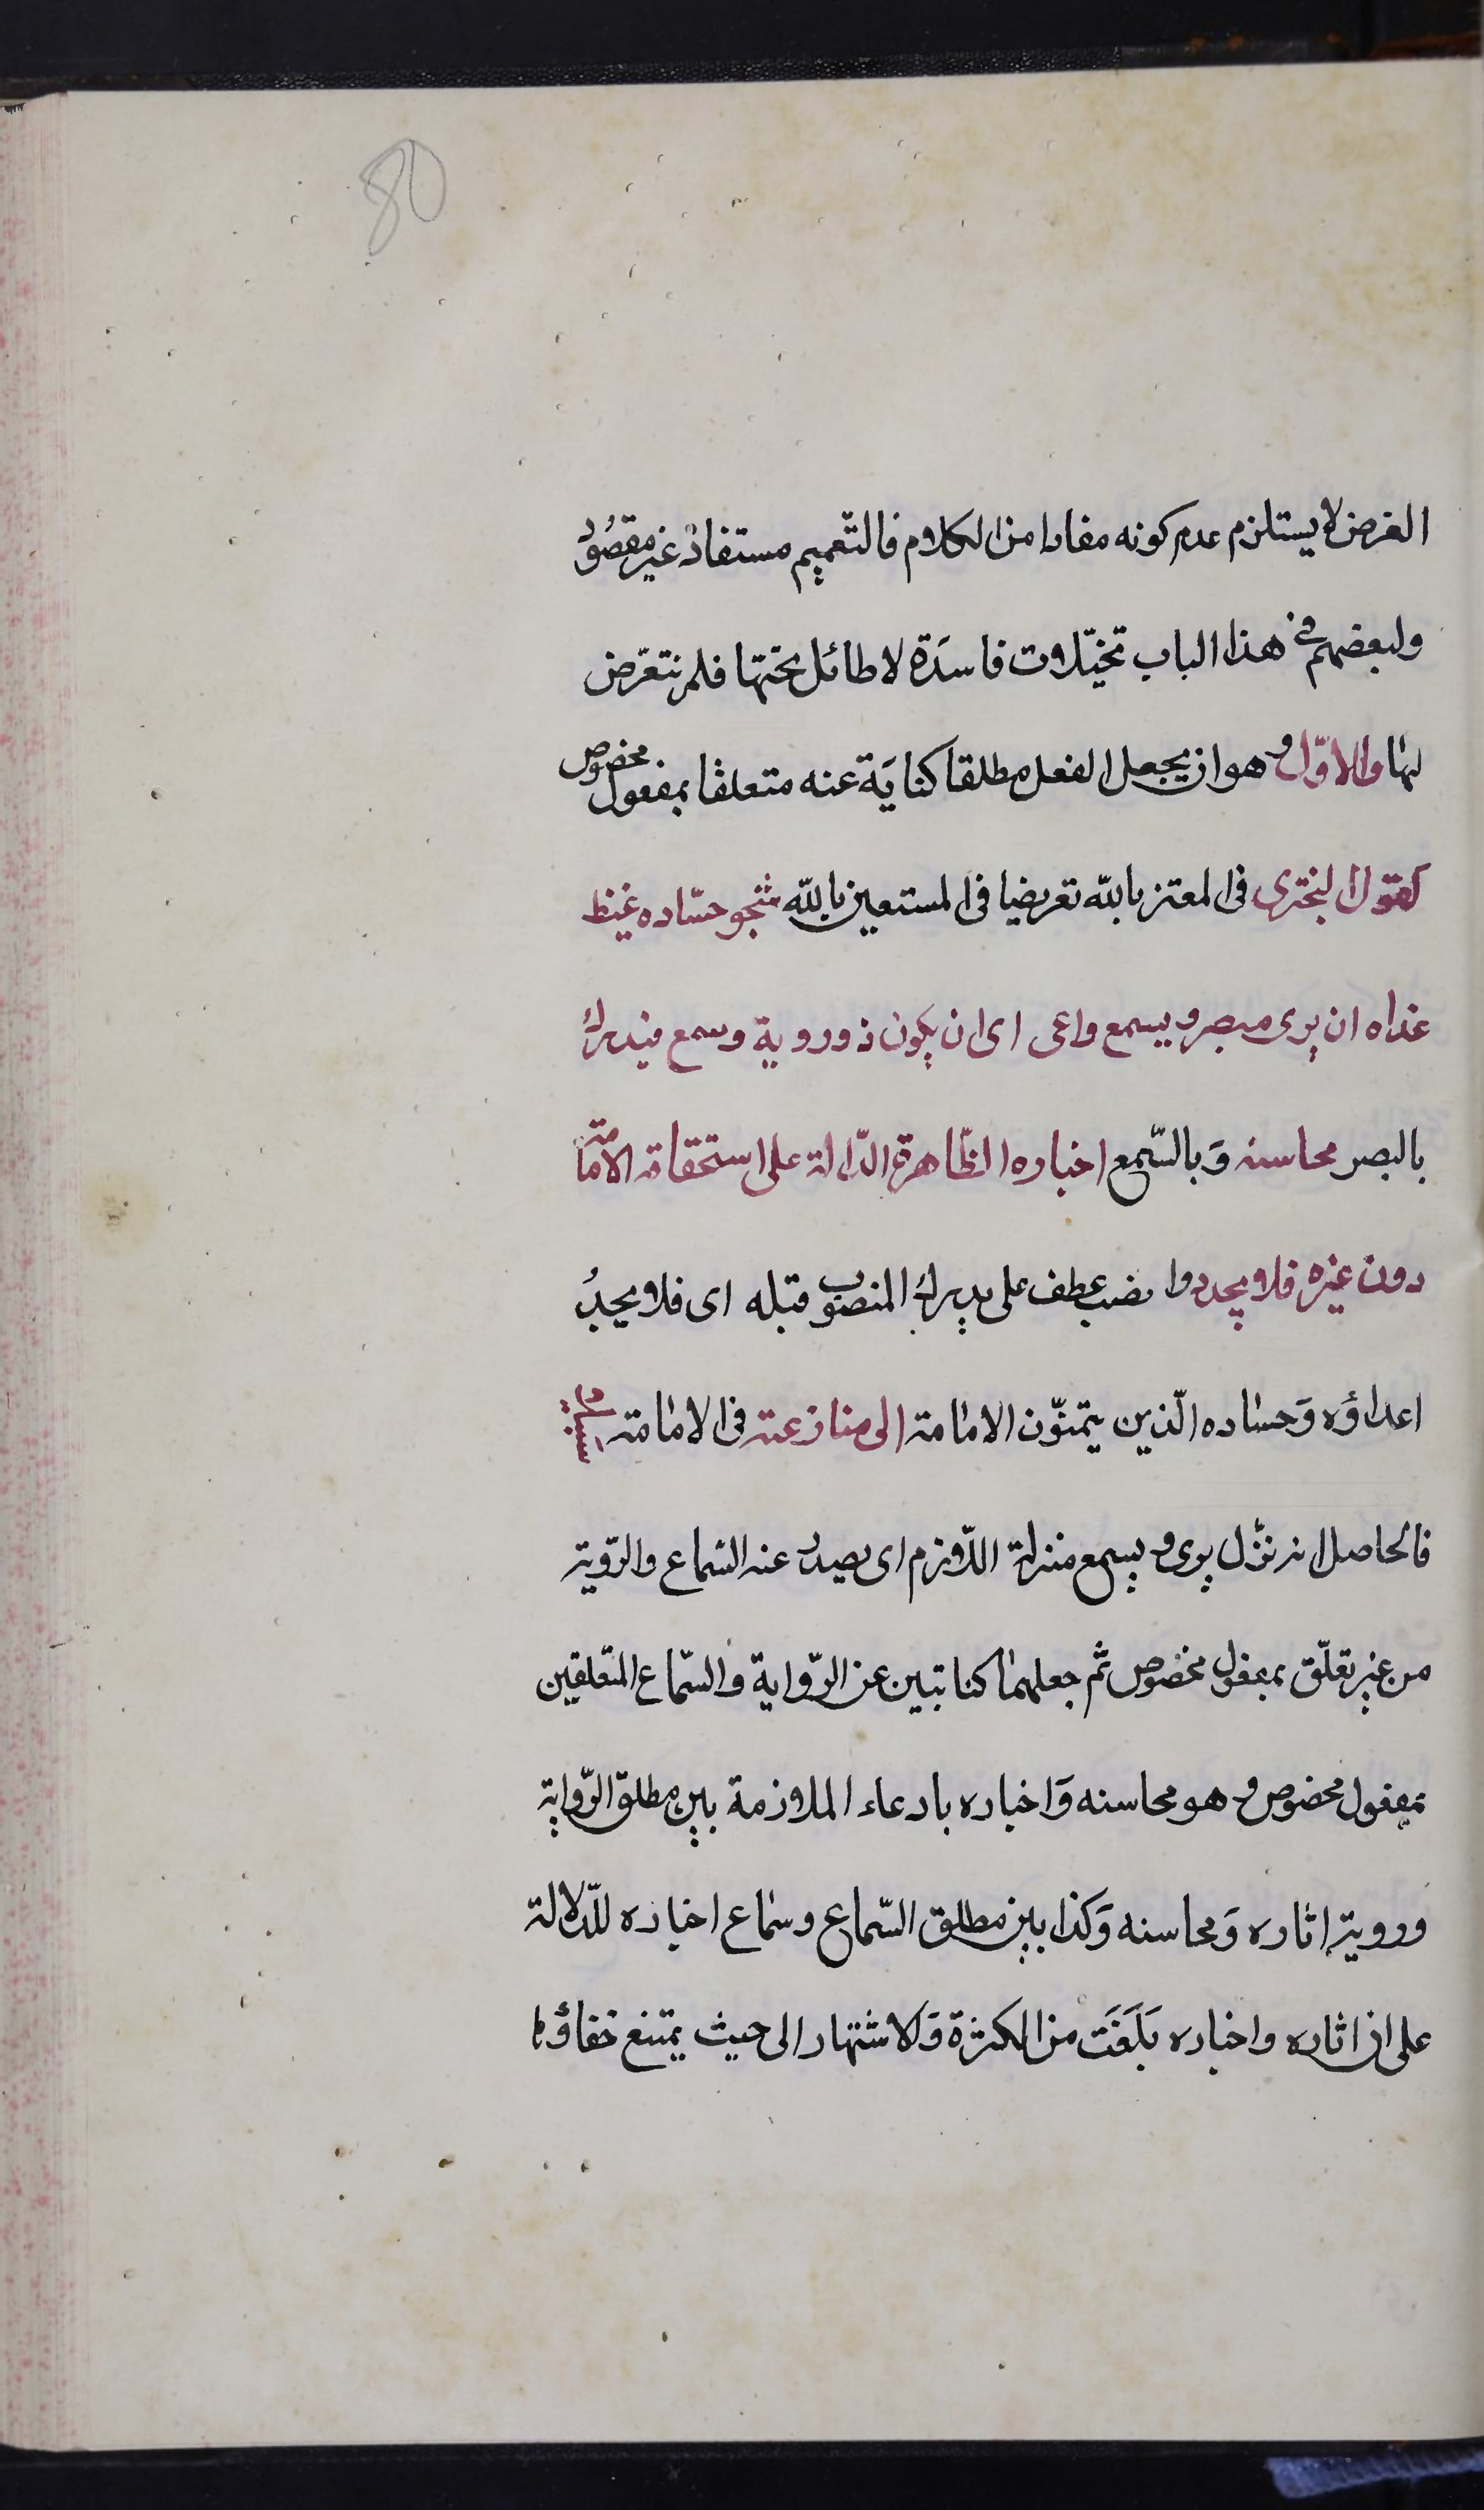 80
الغرض لا يستلزم عدم كونه مفادا من الكلام فالتّعميم مستفاد غير مقصُود
ولبعضهم فى هذا الباب تخيّلات فاسدَة لا طائل تحتها فلم نتعرّض
لها والاوّل وهو ان يجعل الفعل مطلقا كنايَة عنه متعلقا بمفعول مخصوص
كقول البخترى فى المعتز بالله تعريضا فى المستعين بالله شجو حسّاده غيظ
عداه ان يرى مبصر ويسمع واعى اى ان يكون ذو روية وسمع فيدرك
بالبصر محاسنه وَبالسّمع اخباره الظّاهرة الدّالة على استحقاقه الامامة
دون غيره فلا يجدوا نصب عطف على يدرك المنصوب قبله اى فلا يجدُ
اعداؤه وَحساده الّذين يتمنّون الامامة الى منازعته فى الامامة سبيلا
فالحاصل انه نزّل يرى ويسمع منزلة اللّازم اى يصدر عنه السّماع والرّوية
من غير تعلّق بمفعول مخصوص ثم جعلهما كنايتين عن الرّواية والسّماع المتعلقين
بمفعول مخصوص وهو محاسنه وَاخباره بادعاء الملازمة بين مطلق الرّواية
وروية اثاره وَمحاسنه وَكذا بين مطلق السّماع وسماع اخباره للّدلالة
على ان اثاره واخباره بَلَغَت من الكثرة وَالاشتهار الى حيث يمتنع خفاؤها